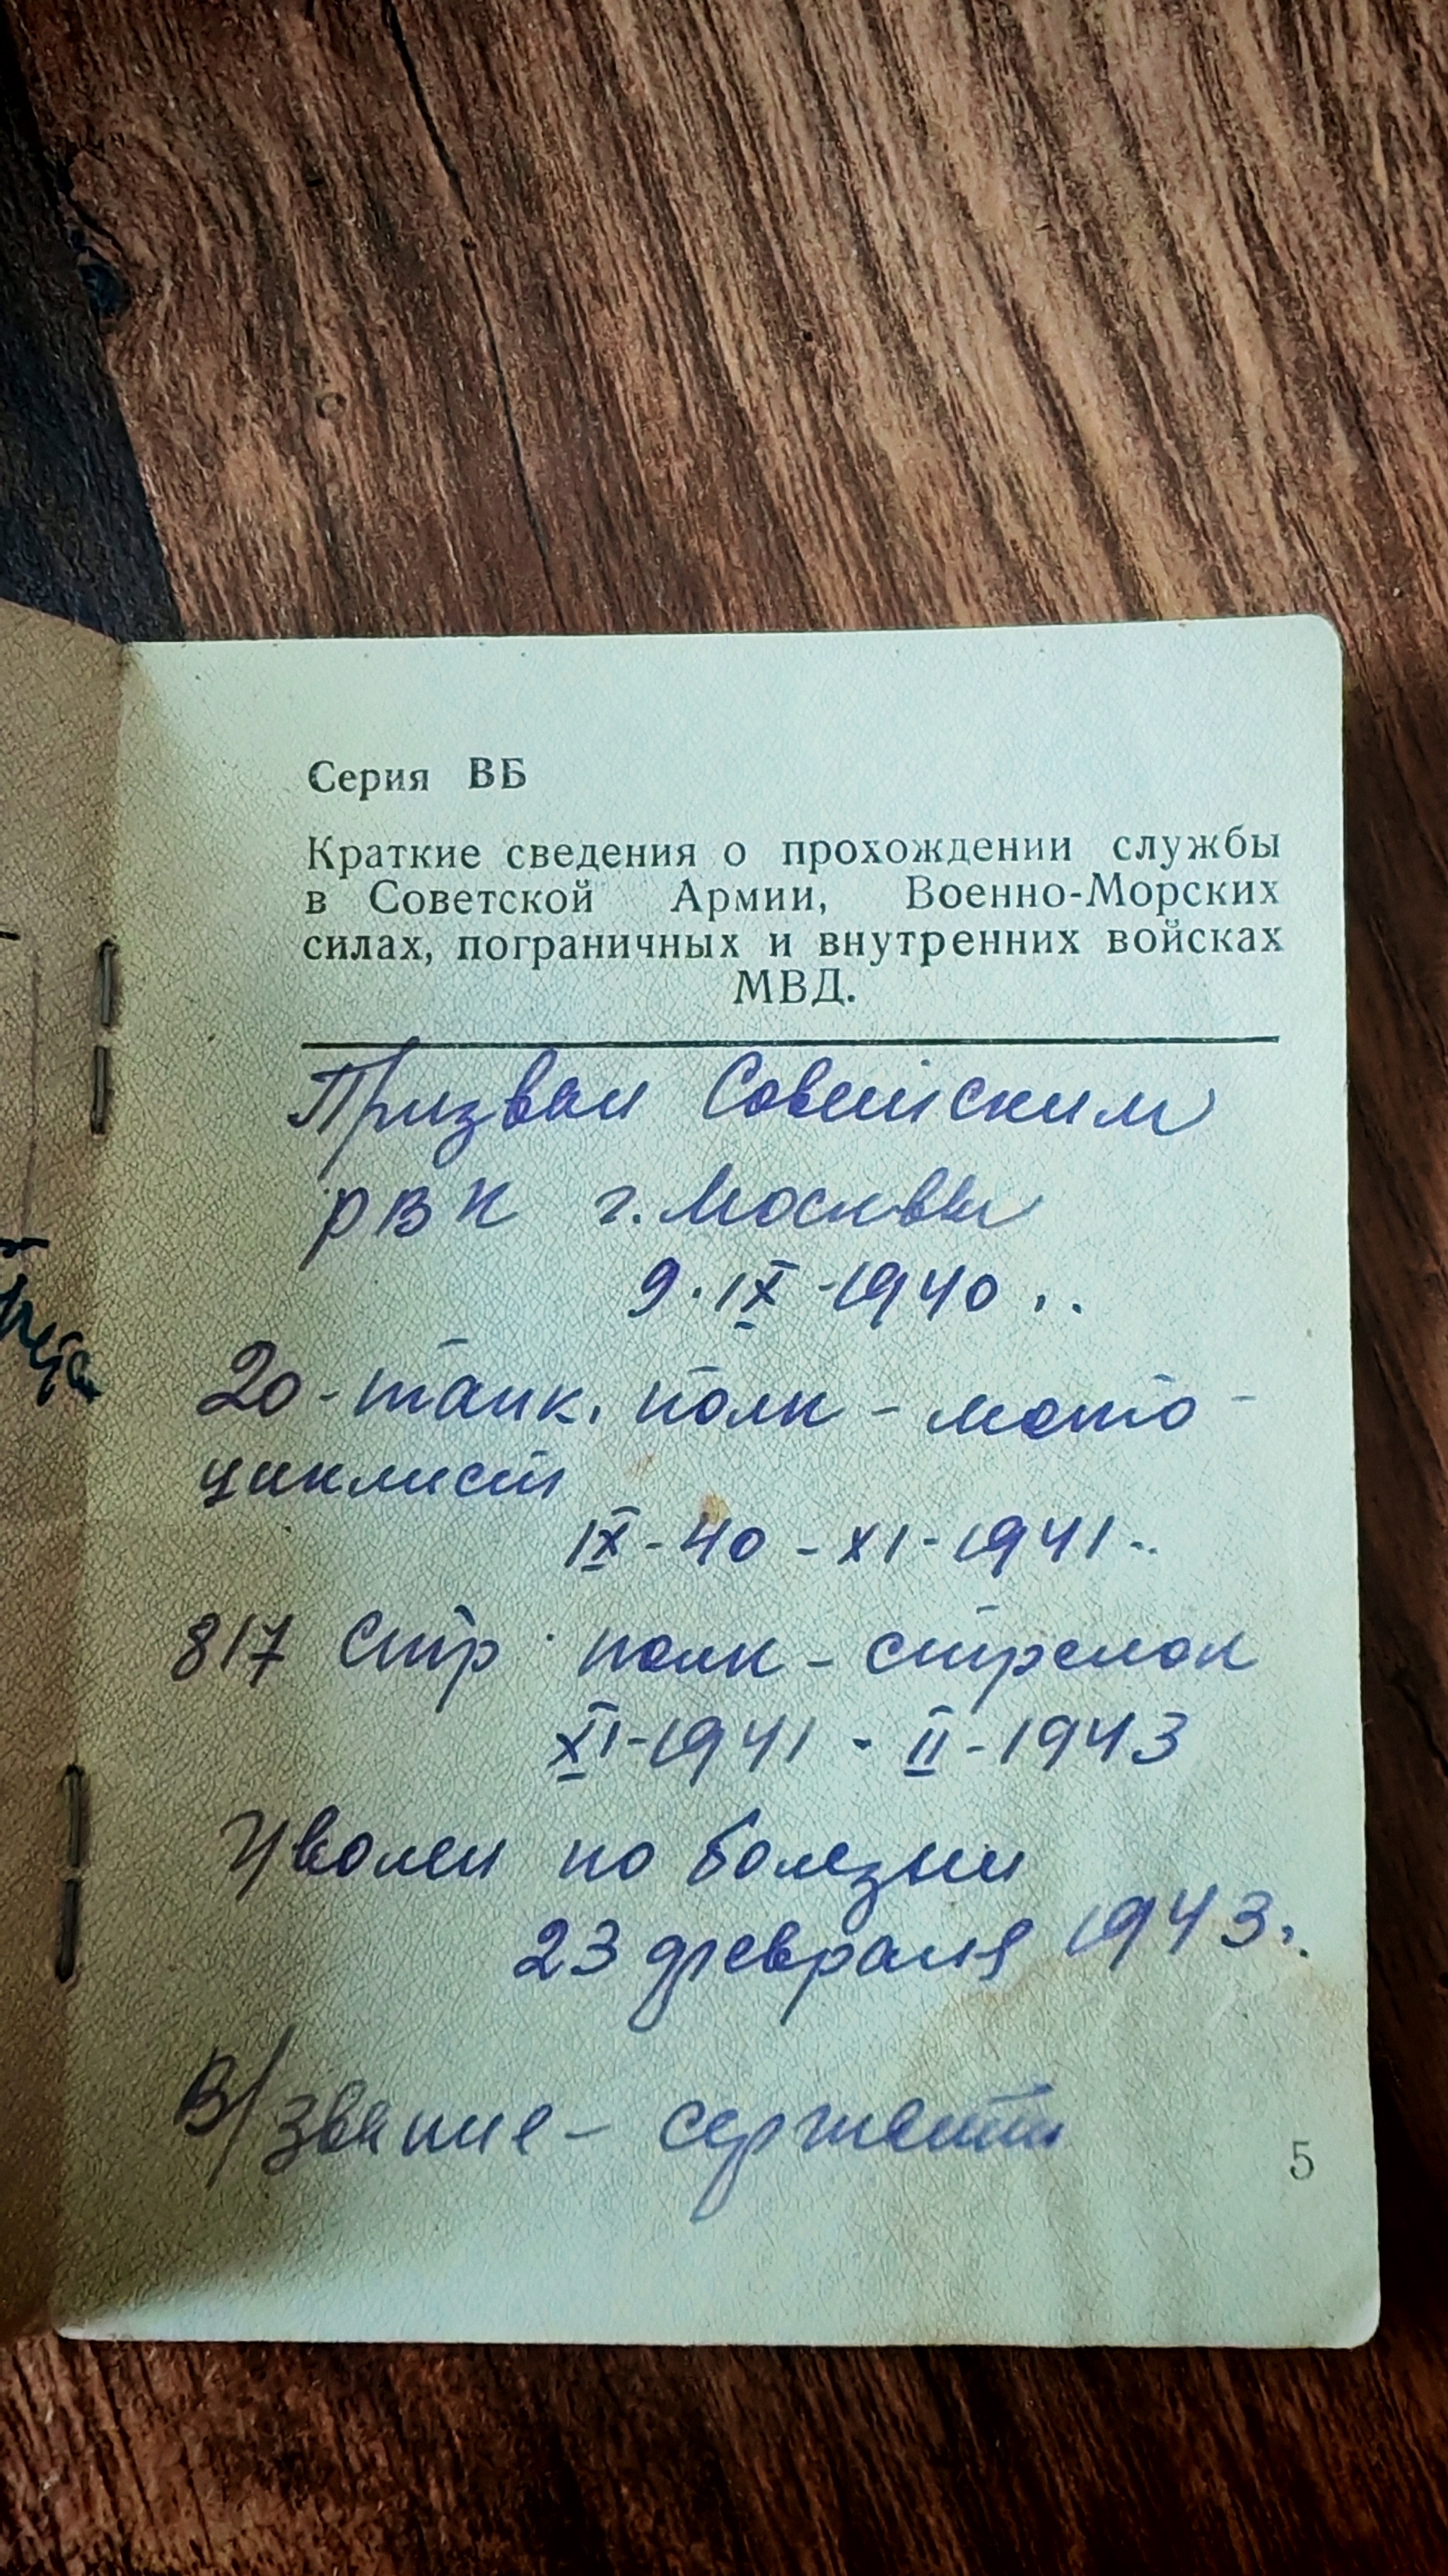 Серия ВБ
Краткие сведения о прохождении службы
в Советской Армии, Военно-Морских
силах, пограничных и внутренних войсках
МВД.
Призван Советским
РВК г. Москвы
9·IX-1940..
20-танк. полк - мото-
циклист
IX-40 - XI-1941..
817 Стр. полк - стрелок
XI-1941 - II-1943
Уволен по болезни
23 февраля 1943г.
В/звание - сержант
5